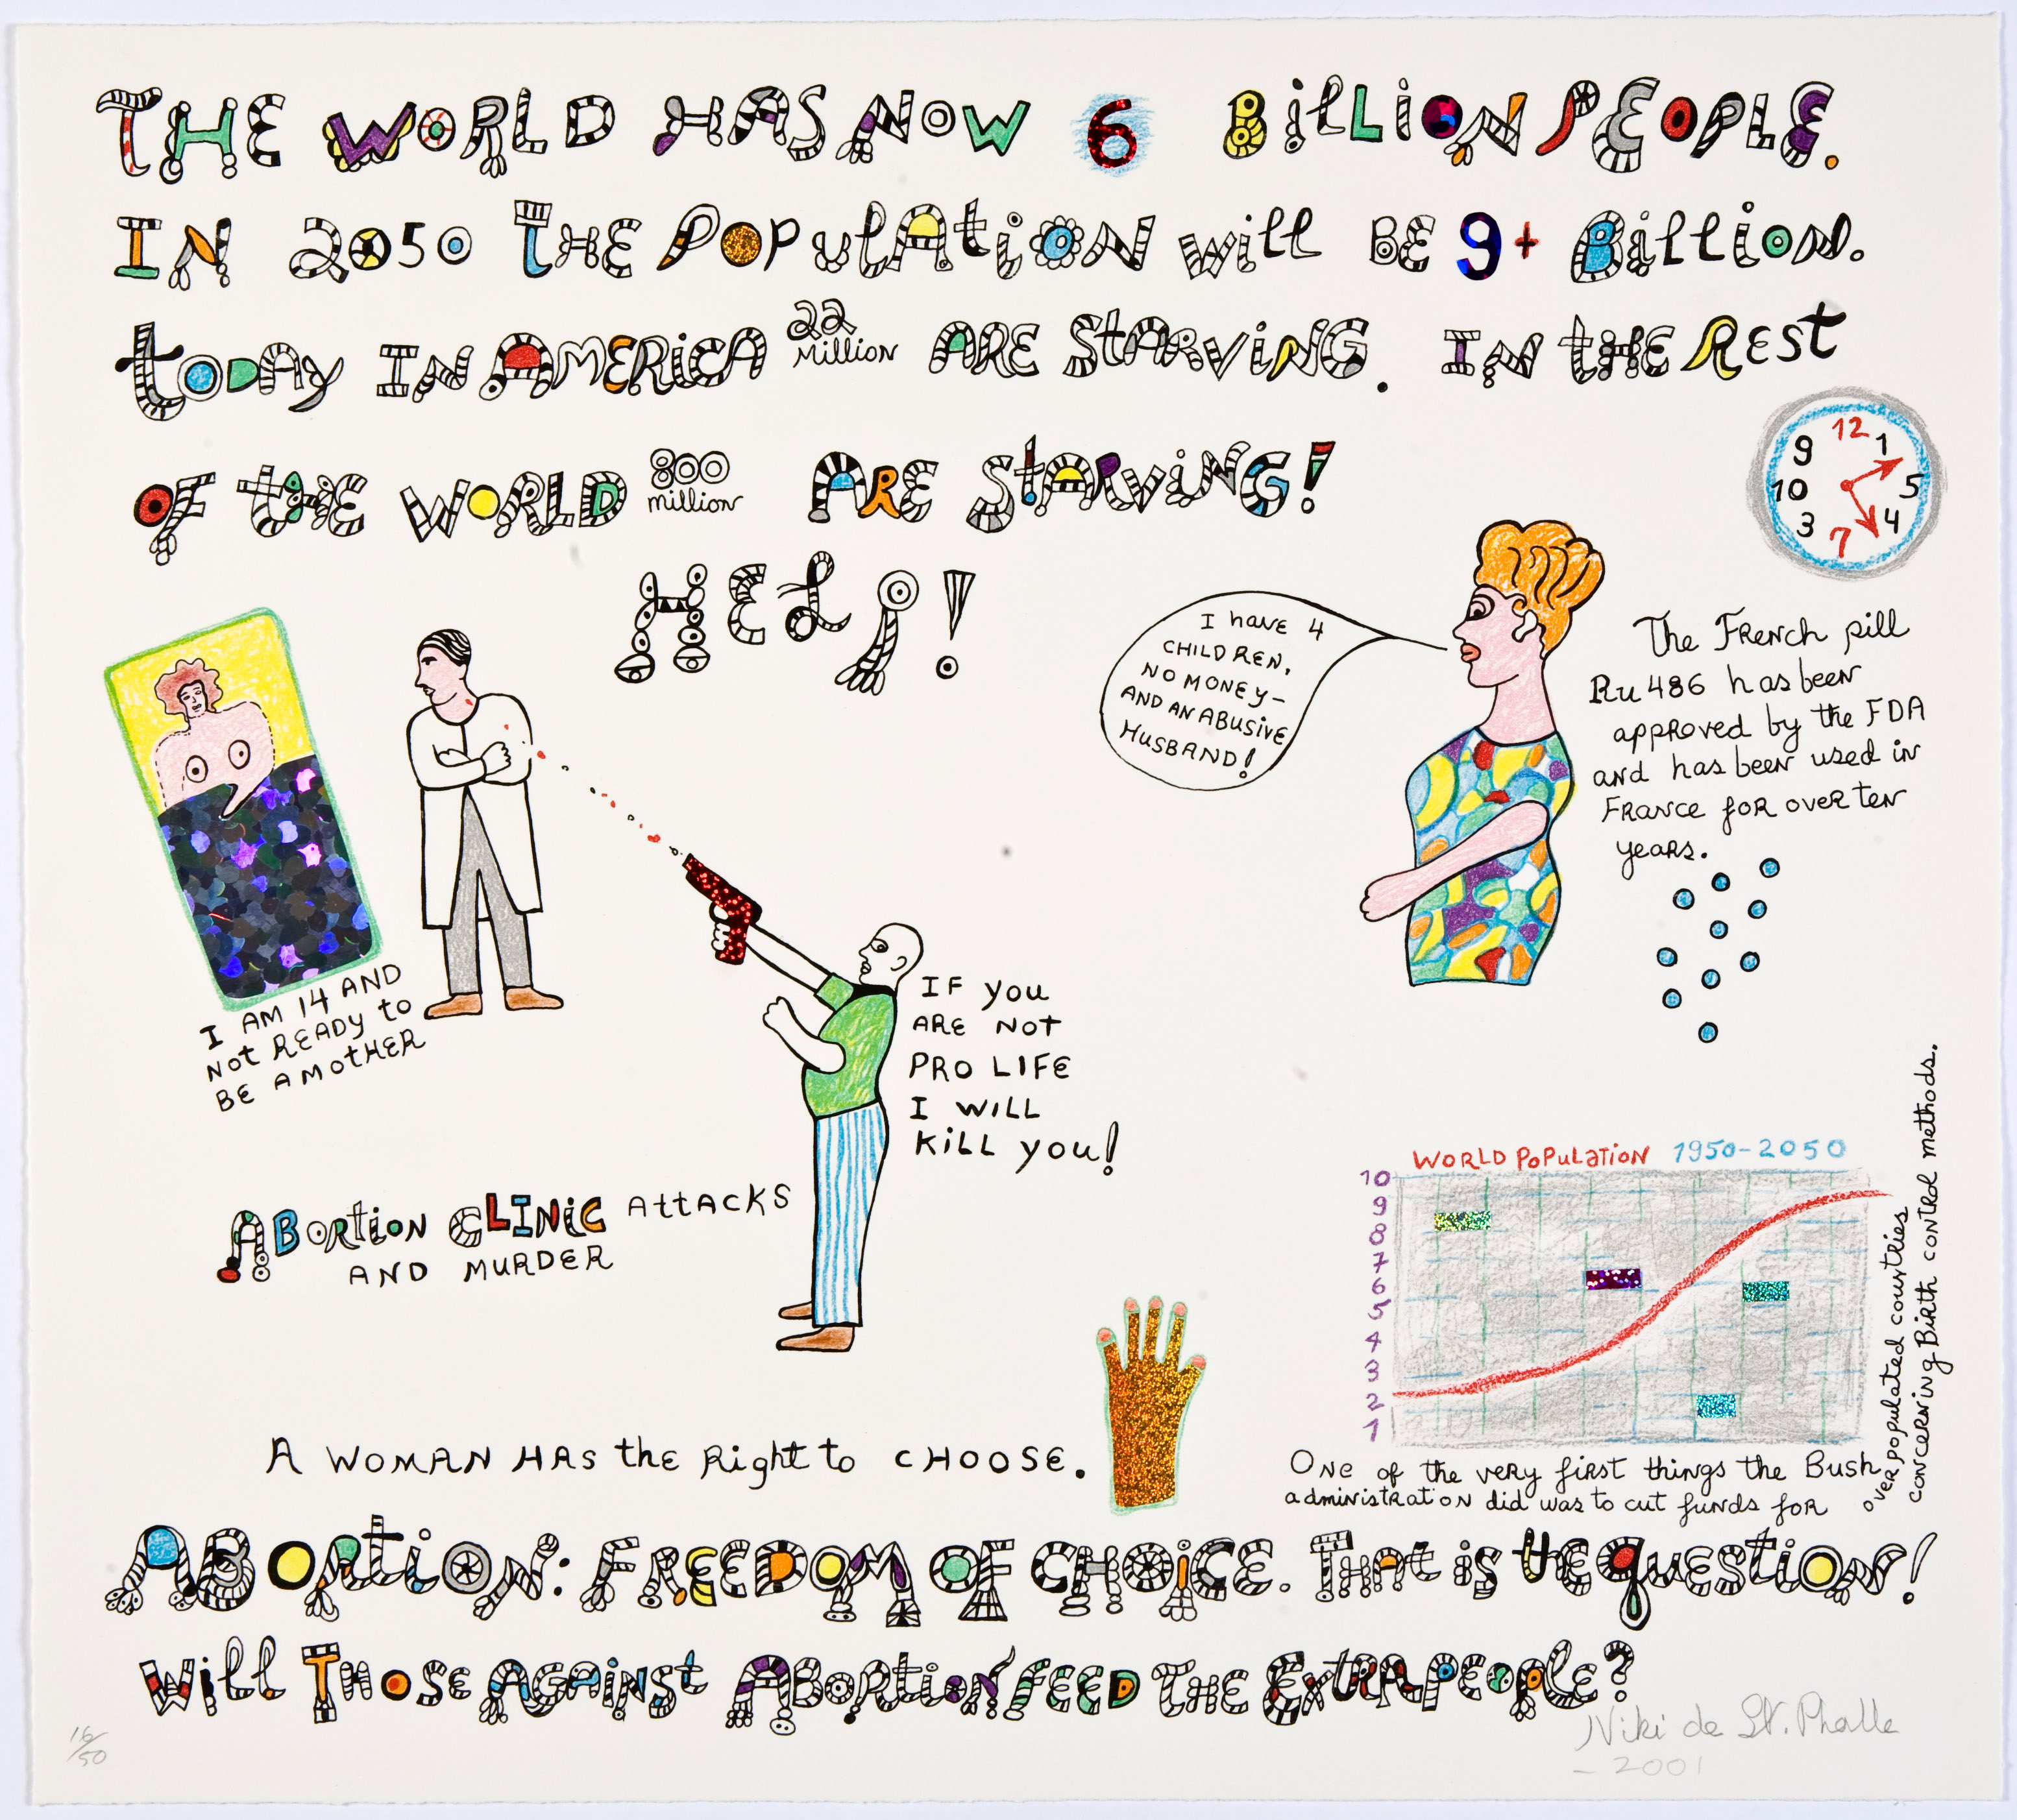 THE WORLD HAS NOW 6 BILLION PEOPLE.
IN 2050 THE POPULATION WILL BE 9+ BILLION.
TODAY IN AMERICA 22 MILLION ARE STARVING. IN THE REST
OF THE WORLD 800 million ARE STARVING!
HELP!
12
1
5
4
7
3
10
9
I have 4
CHILDREN,
NO MONEY-
AND AN ABUSIVE
HUSBAND!
The French pill
Ru 486 has been
approved by the FDA
and has been used in
France for over ten
years.
I AM 14 AND
NOT READY to
BE A MOTHER
IF you
ARE NOT
PRO LIFE
I WILL
KILL you!
ABORTION CLINIC ATTACKS
AND MURDER
WORLD POPULATION 1950-2050
10
9
8
7
6
5
4
3
2
1
One of the very first things the Bush
administration did was to cut funds for
over populated coutries
concerning Birth control methods.
A WOMAN HAS the Right to CHOOSE.
ABORTION: FREEDOM OF CHOICE. THAT IS tHE QUESTION!
Will THOSE AGAINST ABORTION FEED THE EXTRA PEOPLE?
16/50
Niki de St. Phalle
- 2001